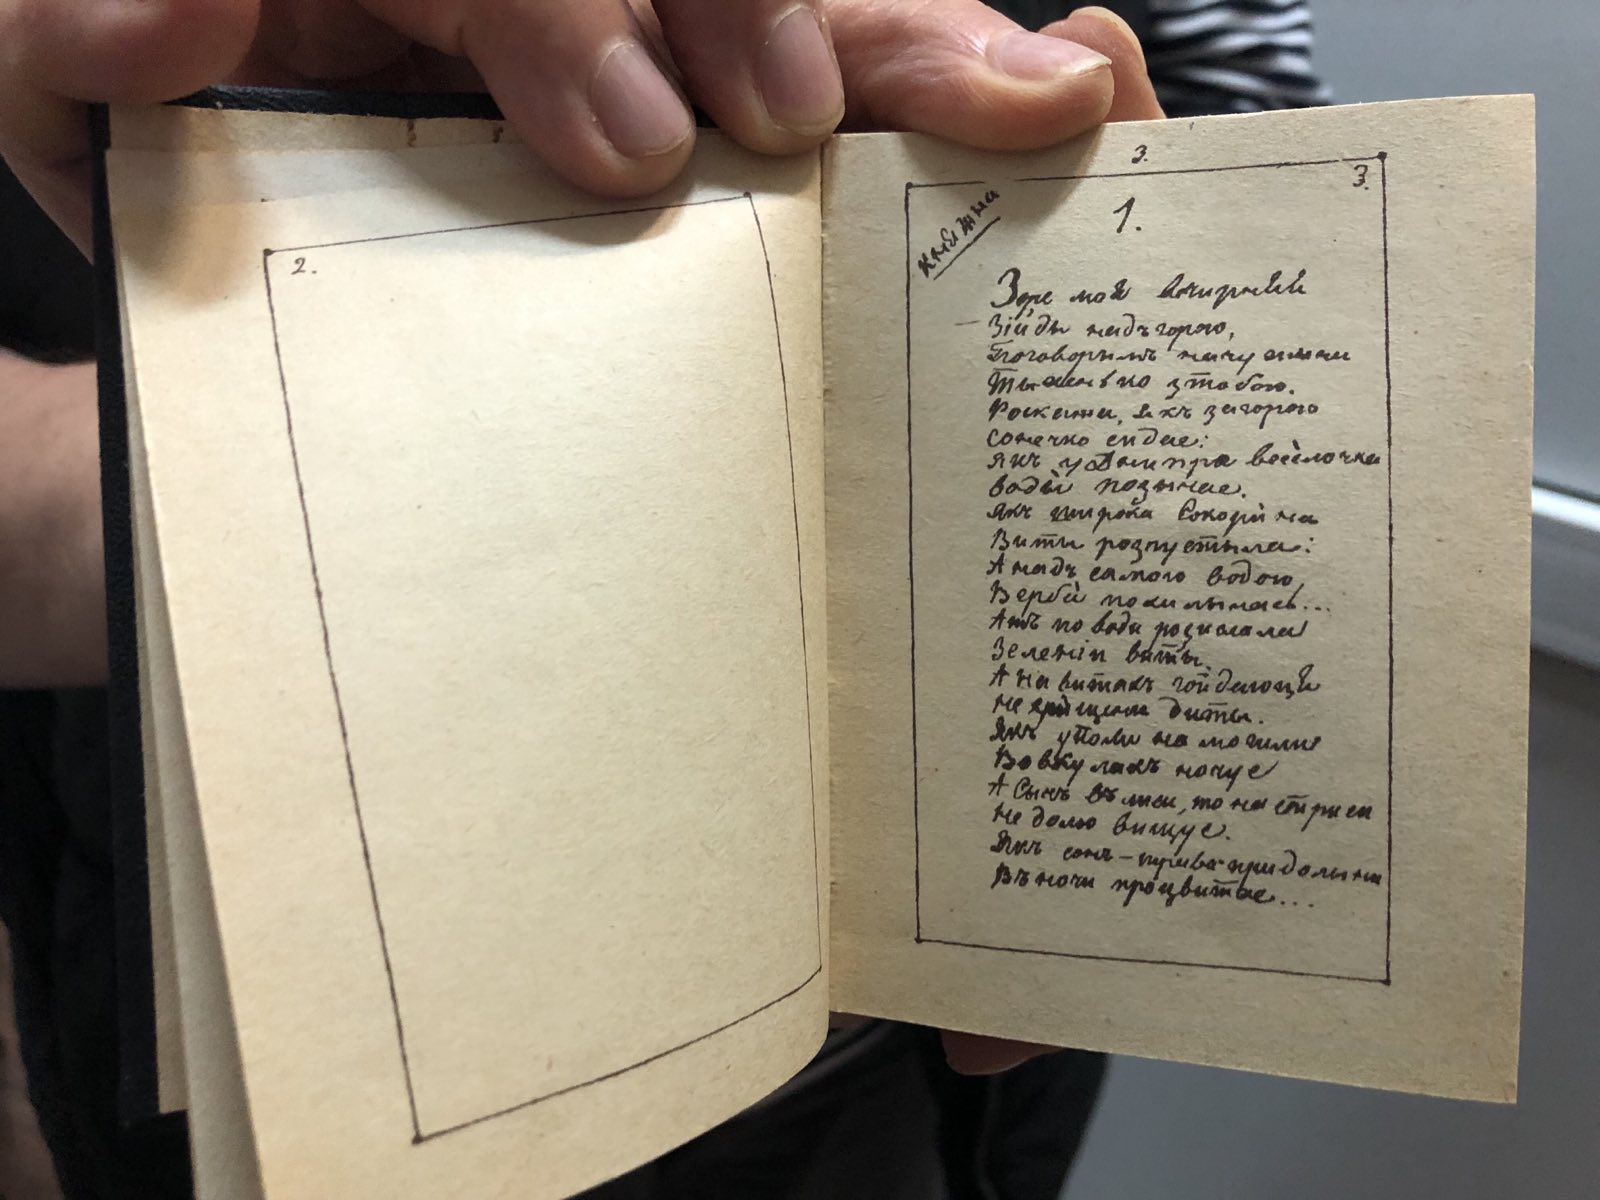 2.
3.
3.
1.
княжна
Зоре моя вечирняя
Зійды надъ горою,
Поговорымъ
Тыхенько зтобою.
Роскажи, якъ загорою
сонечко сидае:
Якъ уДнипра веселочка
воду позычае.
Якъ широка Сокорина
Виты розпустыла:
А надъ самою водою,
Верба похилылась...
Ажъ по води розислала
Зеленіи виты,
А на витахъ гойдаюця
не хрищени диты.
Якъ уполи на могили
Вовкулакъ ночуе
А Сычъ въ лиси, то на стриси
не долю вищуе.
Якъ сонъ-трава придолыни
Въночи процвитае...